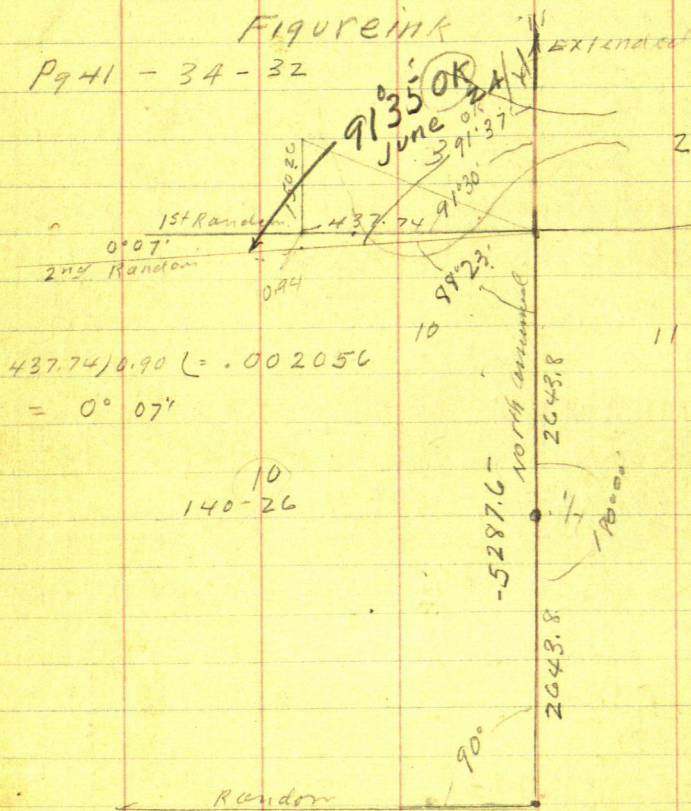 Figureink
Extended
Pg 41 - 34 - 32
91°35' OK
June 24
OK
391°37'
91°30'
2
1st Random
437.74
0°07'
2nd Random
0.94
88°23'
10
11
437.74)0.90(= .002056
= 0° 07'
North assumed
2643.8
10
140-26
-5287.6-
180°00'
2643.8
90°
Random